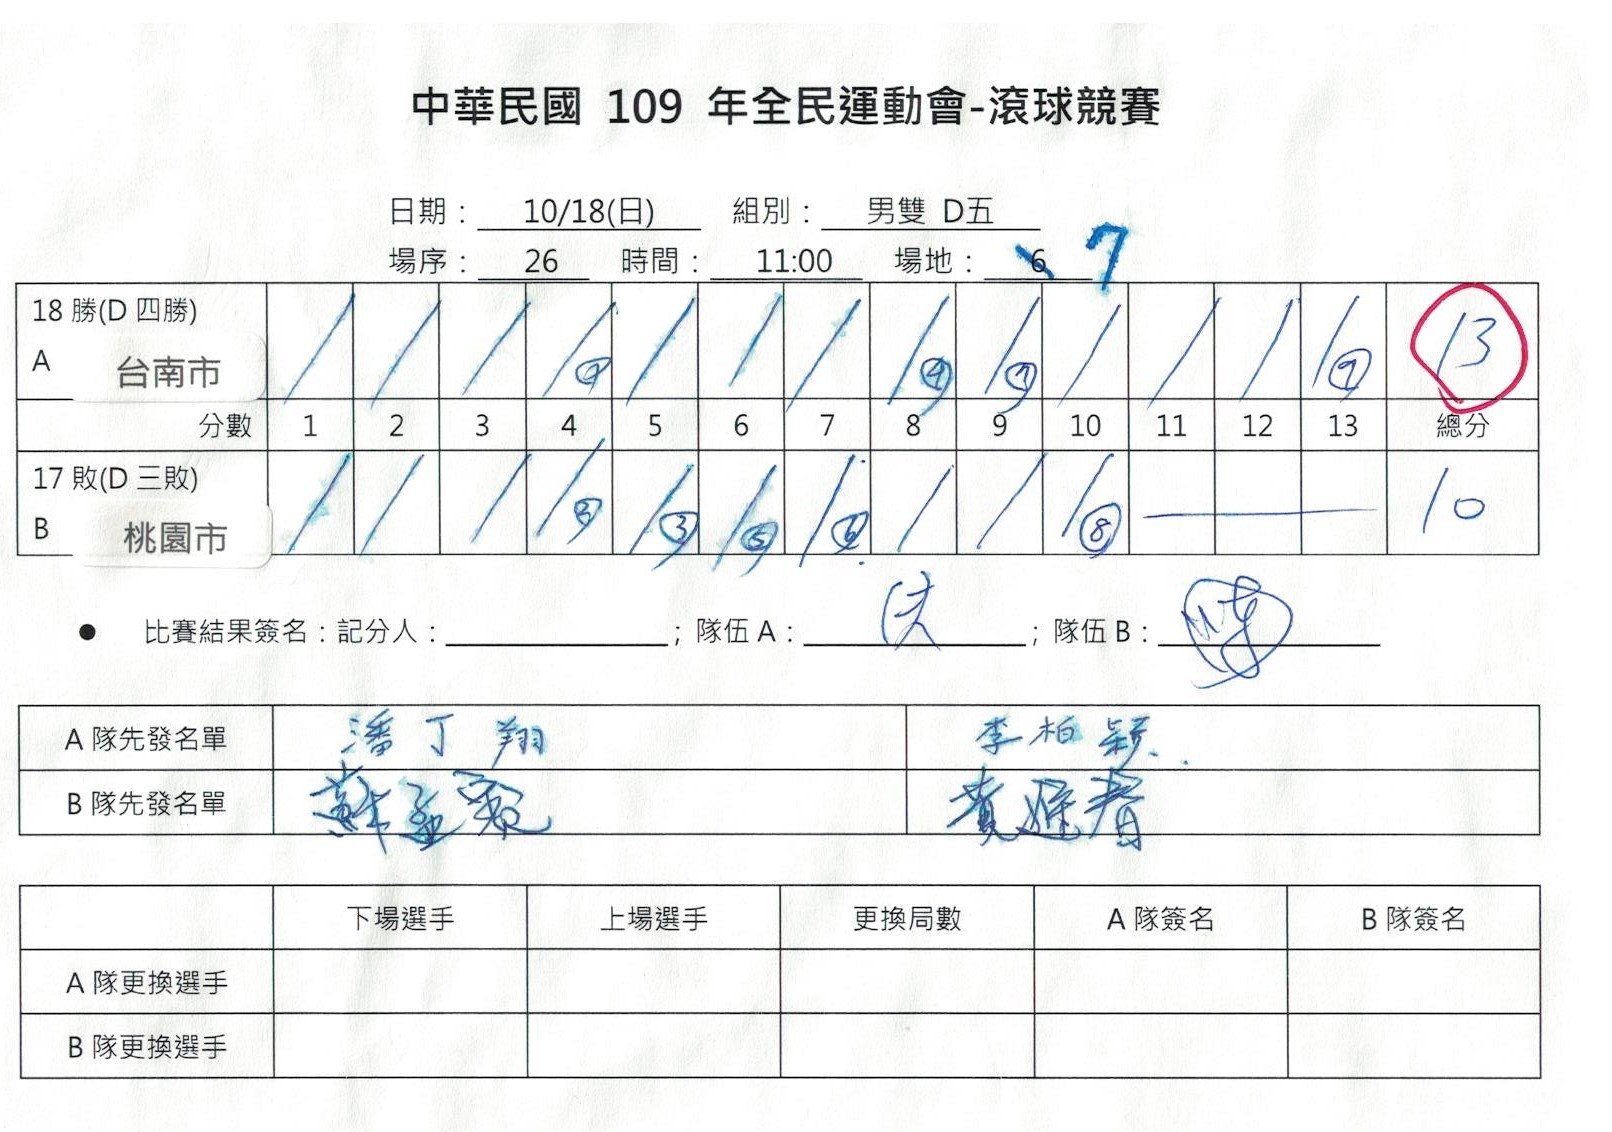 中華民國 109 年全民運動會-滾球競賽
日期： 10/18(日) 組別： 男雙 D五
場序： 26 時間： 11:00 場地： 6 7
18 勝(D 四勝)
A 台南市 13
分數 1 2 3 4 5 6 7 8 9 10 11 12 13 總分
17 敗(D 三敗)
B 桃園市 ③ ⑤ ⑥ ⑧ 10
● 比賽結果簽名：記分人： ；隊伍 A： ；隊伍 B：
A 隊先發名單 潘丁翔 李柏穎
B 隊先發名單
下場選手 上場選手 更換局數 A 隊簽名 B 隊簽名
A 隊更換選手
B 隊更換選手